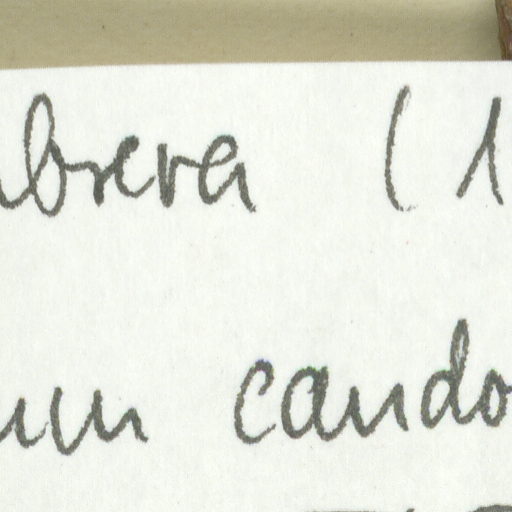 abrera (1
um cando